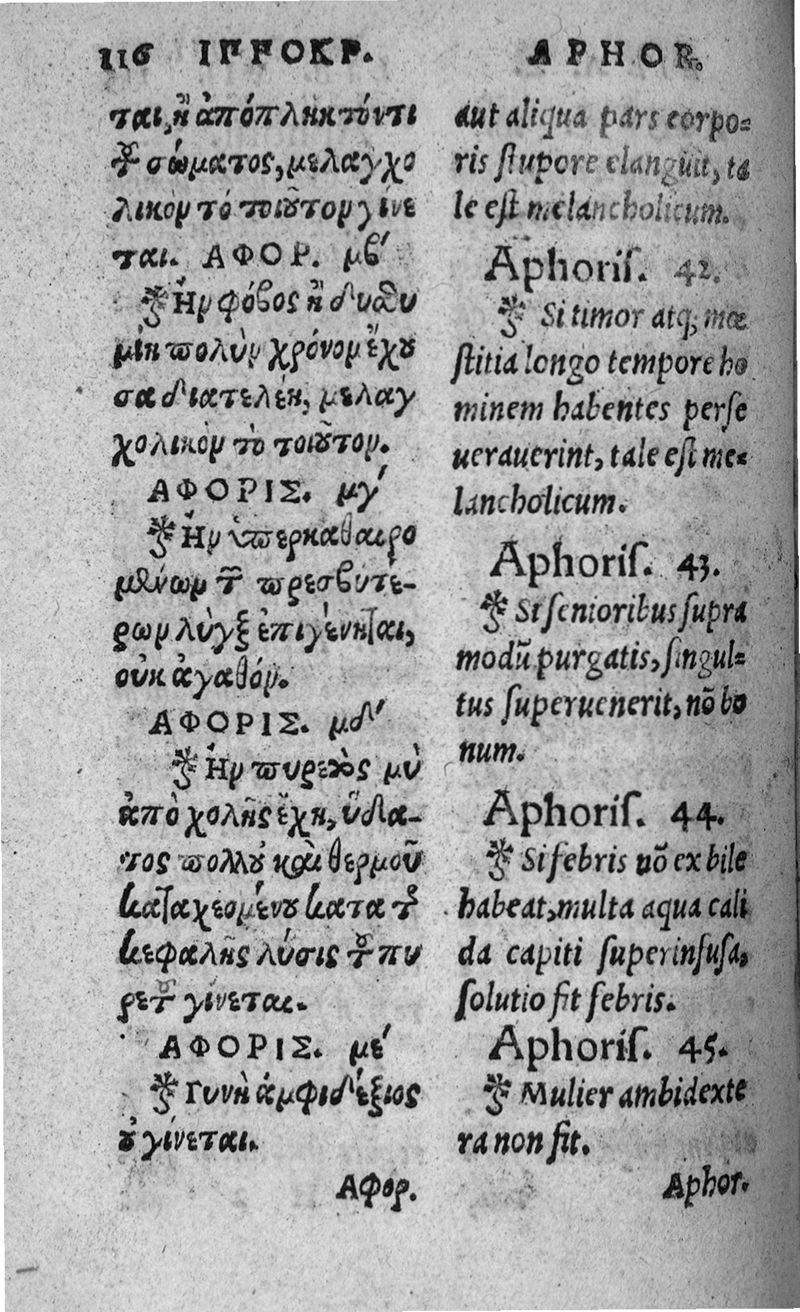 116 ΙΠΠΟΚΡ.
ται, ἢ ἀπόπληκτόν τι
τοῦ σώματος, μελαγχο
λικὸν τὸ τοιοῦτον γίνε
ται. ΑΦΟΡ. μβ΄
Ἢν φόβος ἢ δυσθυ
μίη πολὺν χρόνον ἔχου
σα διατελέη, μελαγ
χολικὸν τὸ τοιοῦτον.
ΑΦΟΡΙΣ. μγ΄
Ἢν ὑπερκαθαιρο
μένων τῶν πρεσβυτέ-
ρων λὺγξ ἐπιγένηται,
οὐκ ἀγαθόν.
ΑΦΟΡΙΣ. μδ΄
Ἢν πυρετὸς μὴ
ἀπὸ χολῆς ἔχῃ, ὕδα-
τος πολλοῦ καὶ θερμοῦ
καταχεομένου κατὰ τῆς
κεφαλῆς λύσις τοῦ πυ
ρετοῦ γίνεται.
ΑΦΟΡΙΣ. με΄
Γυνὴ ἀμφιδέξιος
οὐ γίνεται.
Αφορ.
APHOR.
aut aliqua pars corpo=
ris stupore elanguit, ta
le est melancholicum.
Aphoris. 42.
Si timor atq; mœ
stitia longo tempore ho
minem habentes perse
uerauerint, tale est me=
lancholicum.
Aphoris. 43.
Si senioribus supra
modũ purgatis, singul=
tus superuenerit, nõ bo
num.
Aphoris. 44.
Si febris nõ ex bile
habeat, multa aqua cali
da capiti superinfusa,
solutio fit febris.
Aphoris. 45.
Mulier ambidexte
ra non fit.
Aphor.